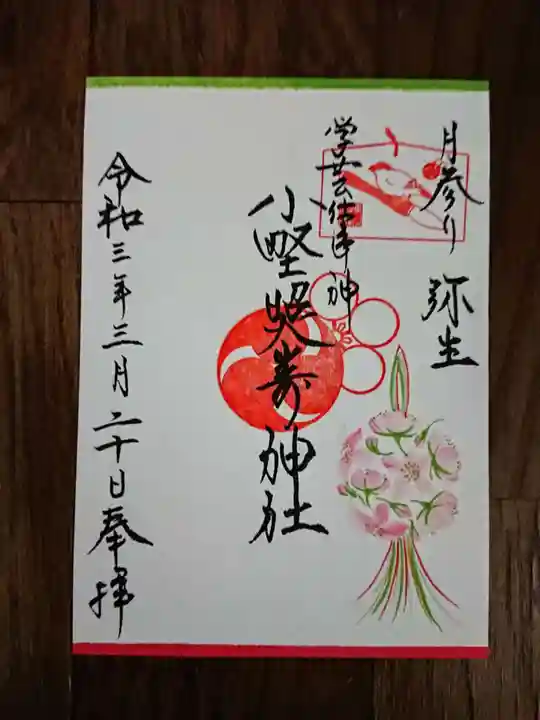 月参り 弥生
学芸仕事神
小野照崎神社
令和三年三月二十日奉拝